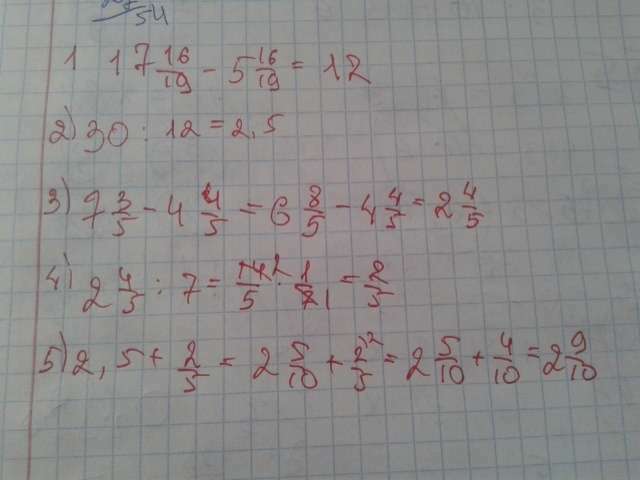 54
1 17 16/19 - 5 16/19 = 12
2) 30 : 12 = 2,5
3) 7 3/5 - 4 4/5 = 6 8/5 - 4 4/5 = 2 4/5
4) 2 4/5 : 7 = 14²/5 · 1/7₁ = 2/5
5) 2,5 + 2/5 = 2 5/10 + 2²/5 = 2 5/10 + 4/10 = 2 9/10